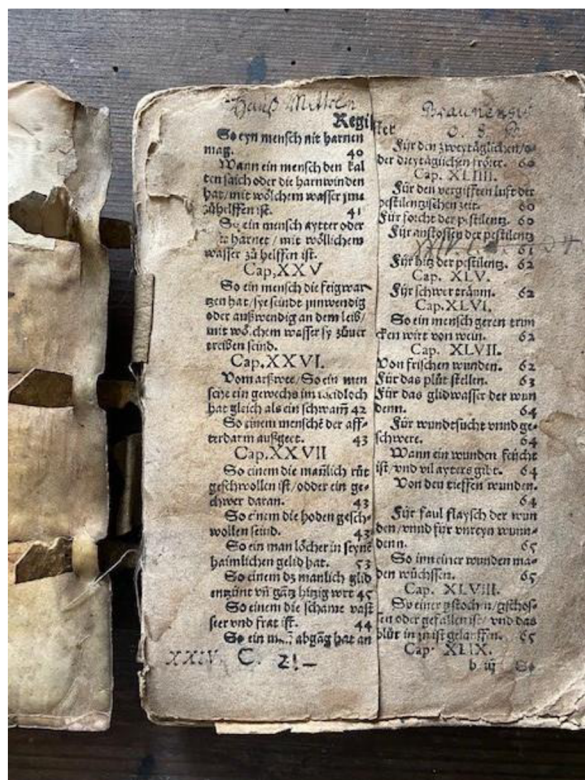 Hauß Mittlen
Regi
So eyn mensch nit harnen
mag. 40
Wann ein mensch den kal
ten saich oder die harnwinden
hat/mit wölchem wasser jme
zůhelffen ist. 41
So ein mensch aytter oder
harnet/mit wöllichem
wasser zů helffen ist.
Cap. XXV
So ein mensch die feigwar
tzen hat/sye seindt jnnwendig
oder außwendig an dem leib/
mit wölchem wasser sy zůuer
treiben seind.
Cap. XXVI.
Vom arßwee/So ein men
sche ein gewechs im waidloch
hat gleich als ein schwam̃ 42
So einem menschẽ der aff-
terdarm außgeet. 43
Cap. XXVII
So einem die manlich růt
geschwollen ist/odder ein ge-
schwer daran. 43
So einem die hoden gesch-
wollen seind. 43
So ein man löcher in seynẽ
haimlichen gelid hat. 53
So einem dz manlich glid
entzünt vñ gãtz hitzig wirt 45
So einem die schame vast
seer vnd frat ist. 44
So ein abgãg hat an
XXIV C. 21–
ster
Für den zweytäglichen/o-
der dreytäglichen frörer. 60
Cap. XLIIII.
Für den vergifften luft der
pestilentzischen zeit. 60
Für forcht der pestilentz. 60
Für anstossen der pestilentz
61
Für hitz der pestilentz. 62
Cap. XLV.
Für schwer träum. 62
Cap. XLVI.
So ein mensch geren trun
cken wirt von wein. 62
Cap. XLVII.
Von frischen wunden. 62
Für das plůt stellen. 63
Für das glidwasser der wun
denn. 64
Für wundtsucht vnnd ge-
schwere. 64
Wann ein wunden feücht
ist/vnd vil ayters gibt. 64
Von den tieffen wunden.
64
Für faul flaysch der wun
den/vnnd für vnreyn wunn-
denn. 65
So inn einer wunden ma-
den wüchssen. 65
Cap. XLVIII.
So einer gstochen/gschos-
sen oder gefallen ist/vnd das
blůt in jn ist gelauffen. 65
Cap. XLIX.
b iij So